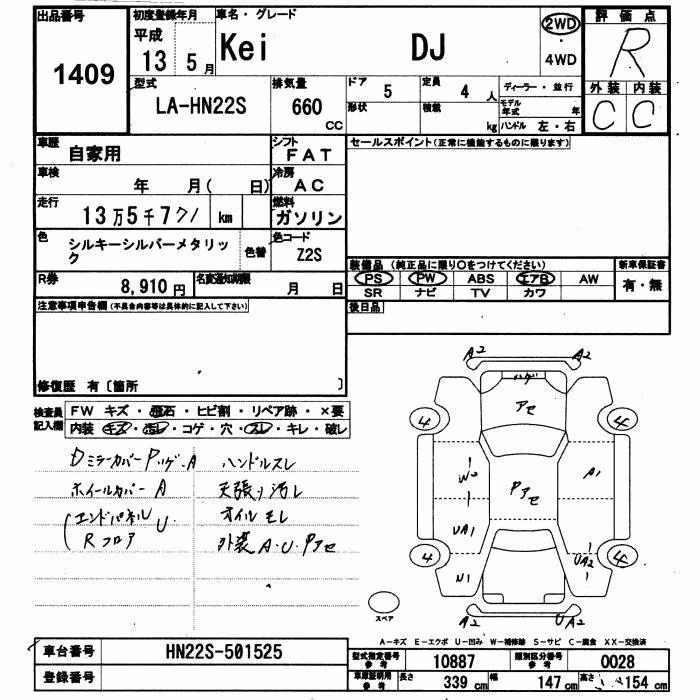 出品番号 初度登録年月 車名・グレード 評価点
1409 平成 13年 5月 Kei DJ 2WD・4WD R
型式 排気量 ドア 5 定員 4人 ディーラー・並行 外装 内装
LA-HN22S 660 CC 形状 積載 kg モデル年式 年 ハンドル 左・右 C C
車歴 自家用 シフト FAT セールスポイント(正常に機能するものに限ります)
車検 年 月( 日) 冷房 AC
走行 13万5千771 km 燃料 ガソリン
色 シルキーシルバーメタリック 色替 色コード Z2S
装備品 (純正品に限り○をつけてください) 新車保証書
R券 8,910円 名変通知期限 月 日 PS PW ABS エアB AW 有・無
SR ナビ TV カワ
注意事項申告欄(不具合内容等は具体的に記入して下さい) 後日品
修復歴 有〔箇所 〕
検査員記入欄 FW キズ・飛石・ヒビ割・リペア跡・×要
内装 キズ・汚レ・コゲ・穴・スレ・キレ・破レ
Dミラーカバー A ハンドルスレ
ホイールカバー A 天張り汚レ
エンドパネル U オイルモレ
Rフロア 外装 A・U・Pアセ
A2 A2
ハゲ
アセ
4 4
W2 A1
Pアセ
UA1 UA2
4 4
U1
A2 UA2
スペア
A-キズ E-エクボ U-凹み W-補修跡 S-サビ C-腐食 XX-交換済
車台番号 HN22S-501525 型式指定番号 参考 10887 類別区分番号 参考 0028
登録番号 車庫証明用 参考 長さ 339cm 幅 147cm 高さ 154cm